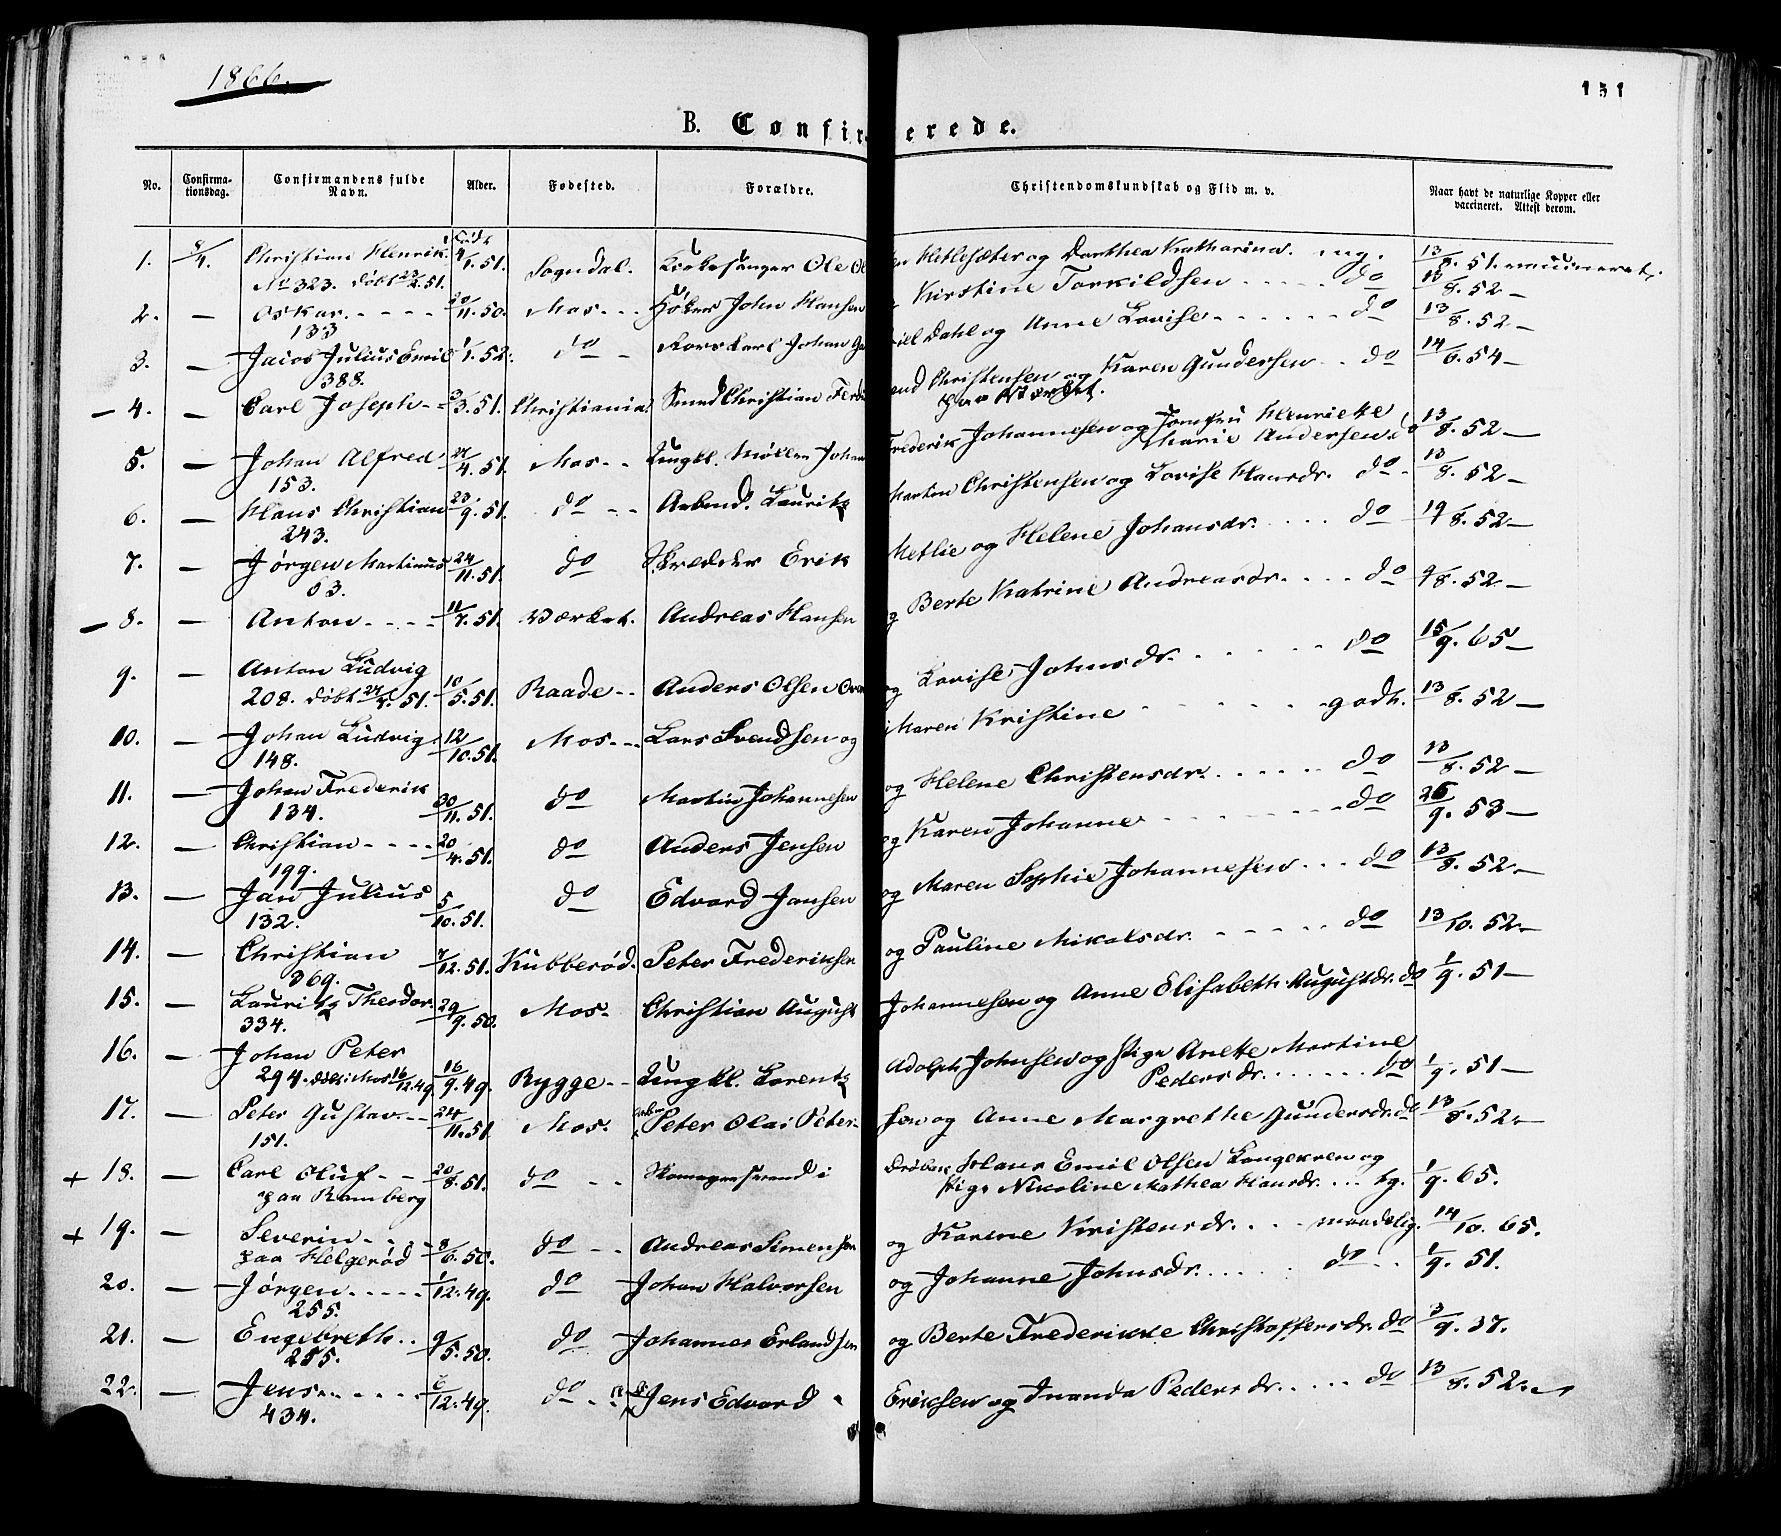 1866.
151
B. Confirmerede.
No. Confirmationsdag. Confirmandens fulde Navn. Alder. Fødested. Forældre. Christendomskundskab og Flid m. v. Naar havt de naturlige Kopper eller vaccineret. Attest derom.
1. 8/4. Christian Henrik 4/1.51. Sogndal. Kirkesanger Ole Hetlesæter og Dorthea Katharina. mg. 13/8.51. vaccineret.
No 323. døbt 23/2.51.
2. — Oskar. 20/11.50. Mos Høker John Hansen Kirstine Torkildsen do 18/8.52 —
133
3. — Julius Emil 1/1.52. do Johan Dahl og Anne Lovise do 13/8.52 —
388.
— 4. — Carl Joseph 3.51. Christiania. Smed Christian Christensen og Karen Gundersen do 14/6.54 —
paa Værket.
5. — Johan Alfred 21/4.51. Mos Ungkl. Møller Frederik Johannesen og Jomfru Henriette
153. Marie Andersen do 13/8.52 —
6. — Hans Christian 23/9.51. do Arbmd. Lauritz Marten Christensen og Lovise Hansdr. do 13/8.52 —
243.
7. — Jørgen Martinus 24/11.51. do Skredder Erik Metlie og Helene Johansdr. do 19/8.52 —
63.
— 8. — Anton 11/7.51. Værket. Andreas Hansen og Berte Katrine Andreasdr. do 9/8.52 —
9. — Anton Ludvig 10/5.51. Raade Anders Olsen og Lovise Johnsdr. do 15/9.65 —
208. døbt 51.
10. — Johan Ludvig 12/10.51. Mos Lars Svendsen og Maren Kristine godt. 13/8.52 —
148.
11. — Johan Frederik 30/11.51. do Martin Johannesen og Helene Christensdr. do 13/8.52 —
134.
12. — Christian 20/4.51. do Anders Jensen og Karen Johanne do 26/9.53 —
199.
13. — Jan Julius 5/10.51. do Edvard Jansen og Maren Sophie Johannesen do 13/8.52 —
132.
14. — Christian 7/12.51. Kubberød. Peter Frederiksen og Pauline Mikalsdr. do 13/10.52 —
369.
15. — Lauritz Theodor 29/9.50. Mos. Christian August Johannesen og Anne Elisabeth Augustdr. do 1/9.51 —
334.
16. — Johan Peter 16/9.49. Rygge Ungkl. Lorentz Adolph Johnsen og Pige Anette Martine
294. døbt i Mos 16/12.49 Pedersdr. do 1/9.51 —
17. — Peter Gustav 24/11.51 Mos. Peter Olai Petersen og Anne Margrethe Gundersdr. do 13/8.52 —
151.
+ 18. — Carl Oluf 20/8.51. do Skomagersvend i Drøbak Hans Emil Olsen Langekren og
paa Ramberg Pige Nikoline Mathea Hansdr. tg. 1/9.65.
+ 19. — Severin 8/6.50. do Andreas Simensen og Karine Kristensdr. maadelig. 14/10.65.
paa Helgerød
20. — Jørgen 1/12.49. do Johan Halvorsen og Johanne Johnsdr. do 1/9.51.
255.
21. — Engebreth 9/5.50. do Johannes Erlandsen og Berte Frederikke Christoffersdr. do 3/9.37.
255.
22. — Jens 12.49. do Jens Edvard Eriksen og Inanda Pedersdr. do 13/8.52.
434.